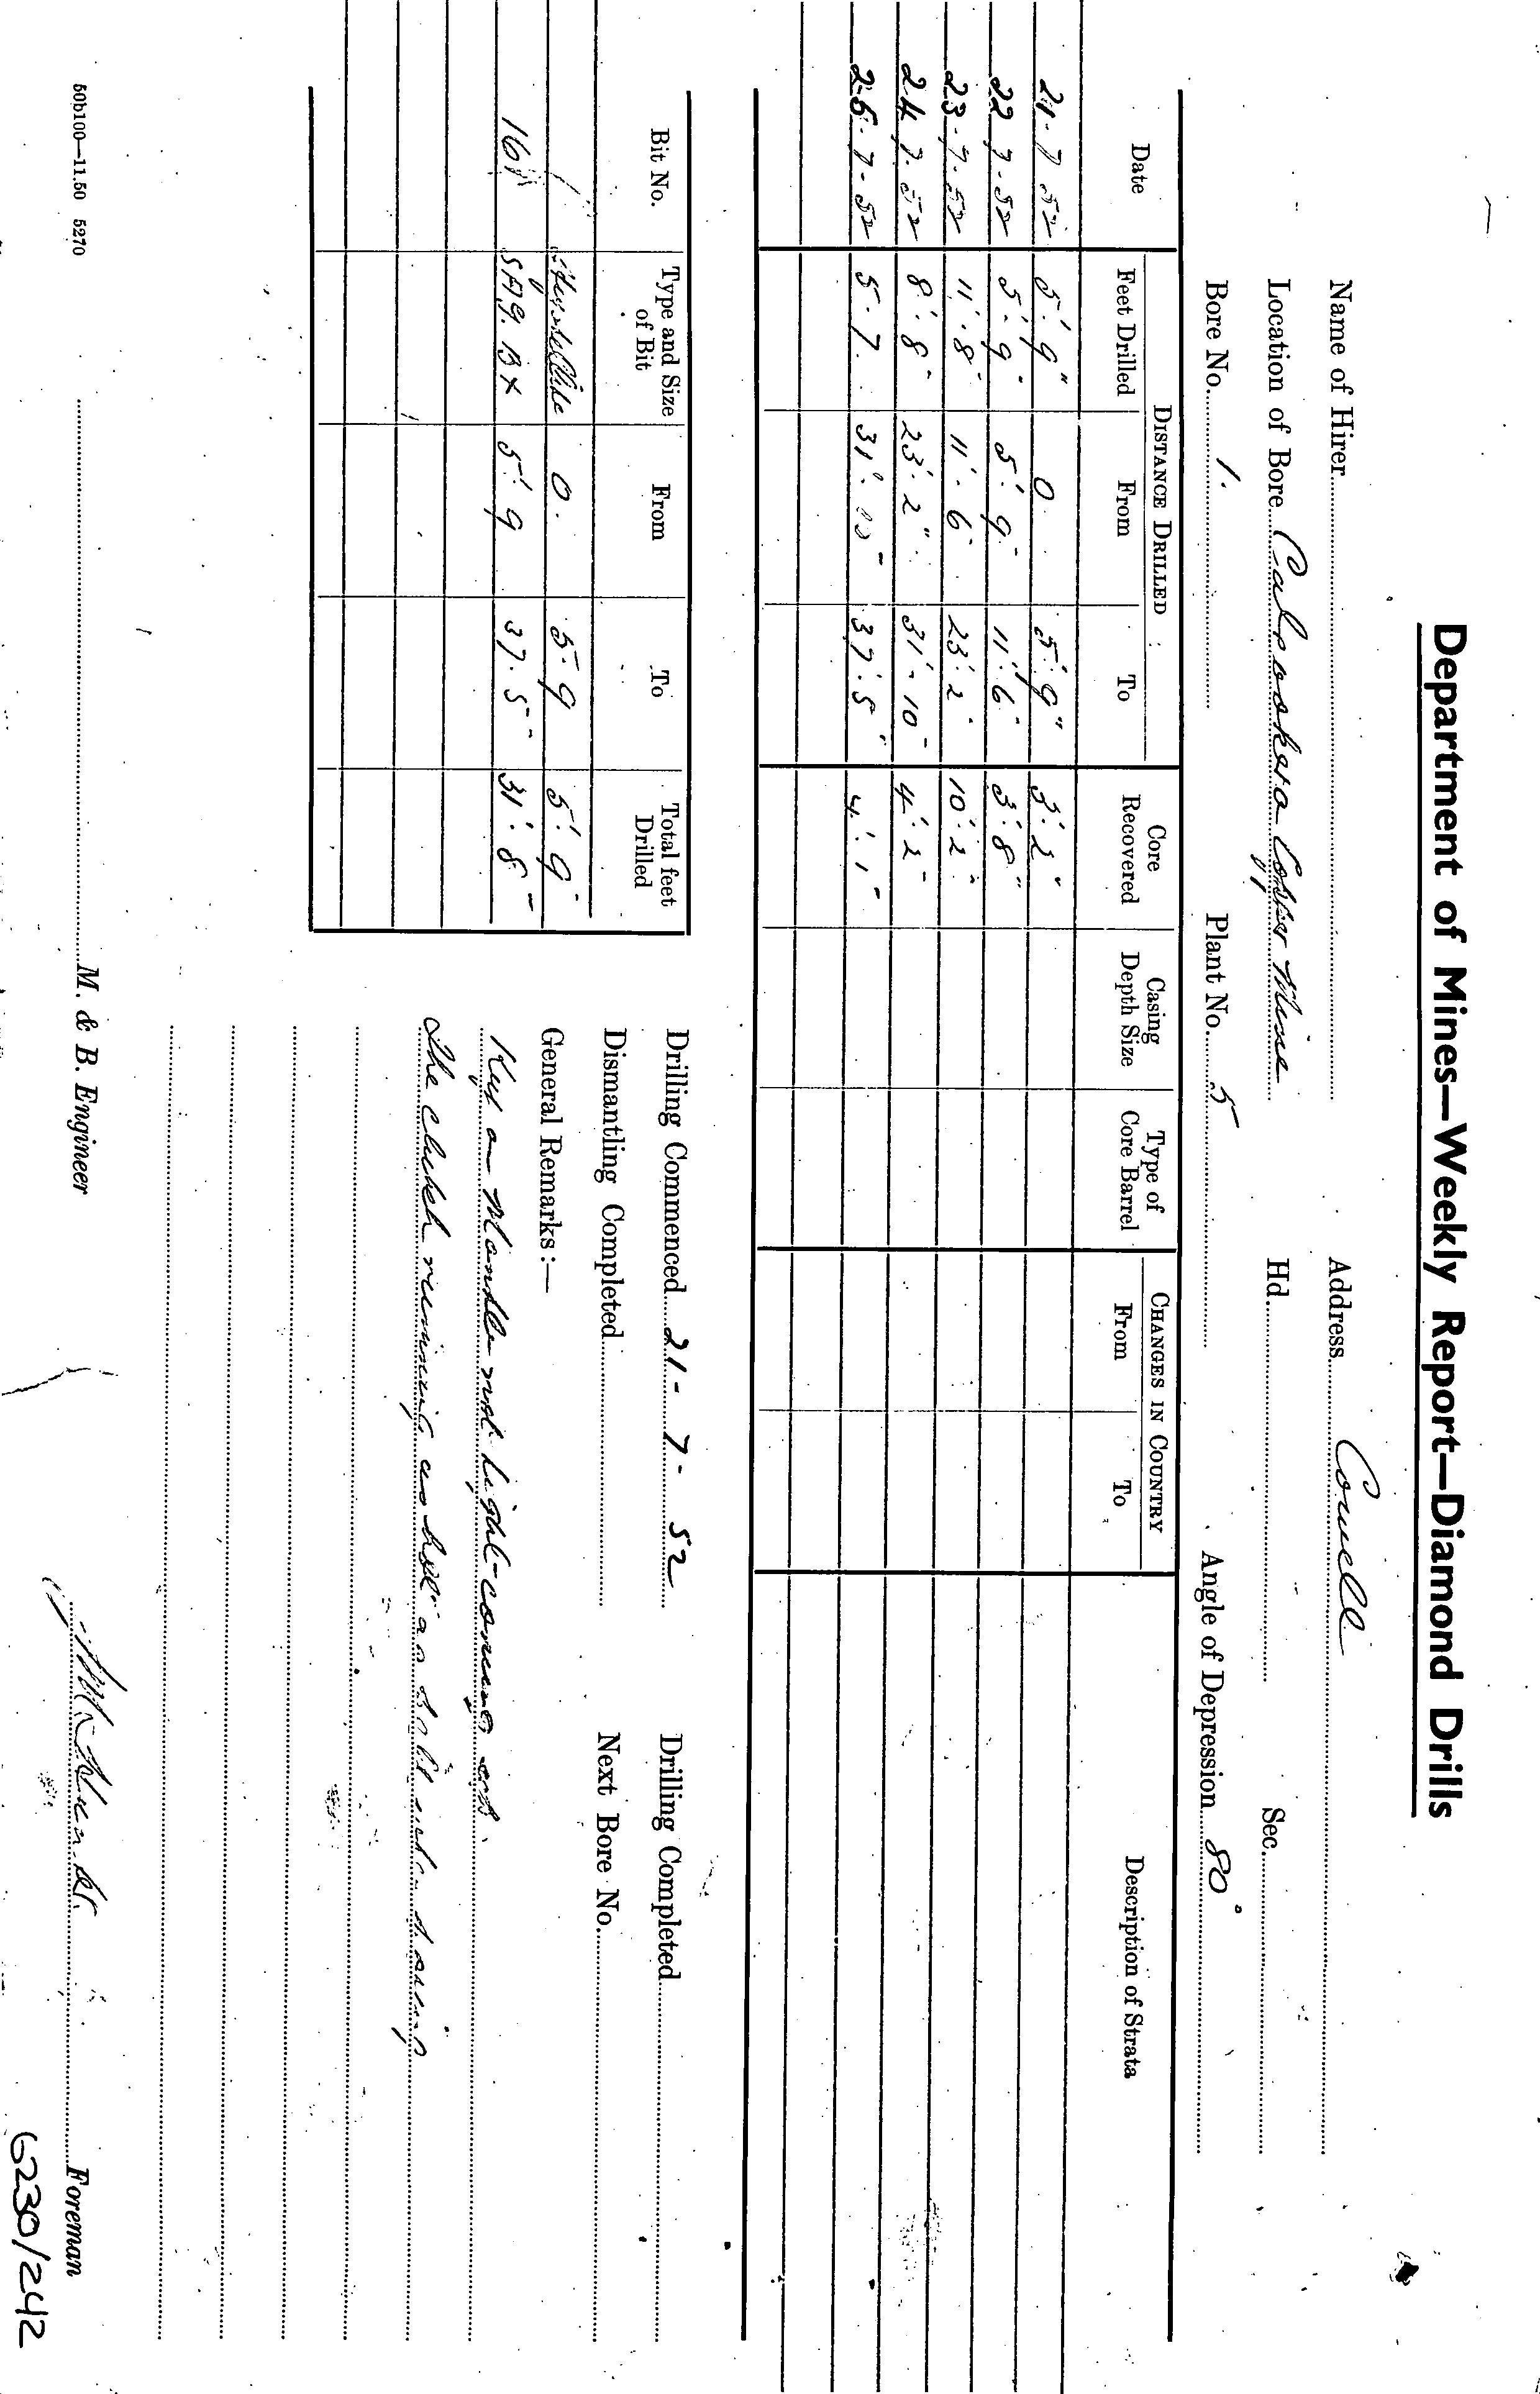 Department of Mines—Weekly Report—Diamond Drills
Name of Hirer Address Cowell
Location of Bore Calcookara Copper Mine Hd. Sec.
Bore No. 1. Plant No. 5 Angle of Depression 80°
Date DISTANCE DRILLED Core Recovered Casing Depth Size Type of Core Barrel CHANGES IN COUNTRY Description of Strata
Feet Drilled From To From To
21-7 52 5'.9" 0 5'.9" 3'.2"
22 7-52 5'.9" 5'.9" 11'.6" 3'.8"
23-7-52 11'.8" 11'.6 23'.2" 10'.2"
24 7.52 8'.8" 23'.2" 31'-10" 4'.2"
25.7-52 5-7 31'.10" 37'.5" 4'.1"
Bit No. Type and Size of Bit From To Total feet Drilled
0. 5-9 5'.9"
16 SA9. BX 5'.9 37.5" 31'.8"
Drilling Commenced 21-7-52 Drilling Completed
Dismantling Completed Next Bore No.
General Remarks:—
Key on Mandle not tight coming out.
The clutch running as hot as
M. & B. Engineer Foreman
50b100—11.50 5270
6230/242